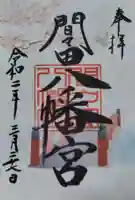 奉拝
間々田八幡宮
令和二年三月二十七日